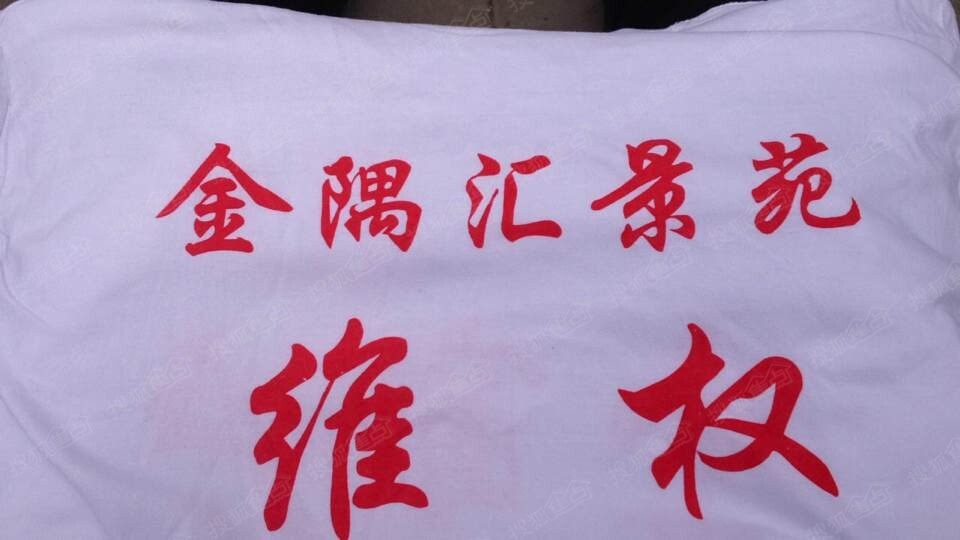 金隅汇景苑
维权